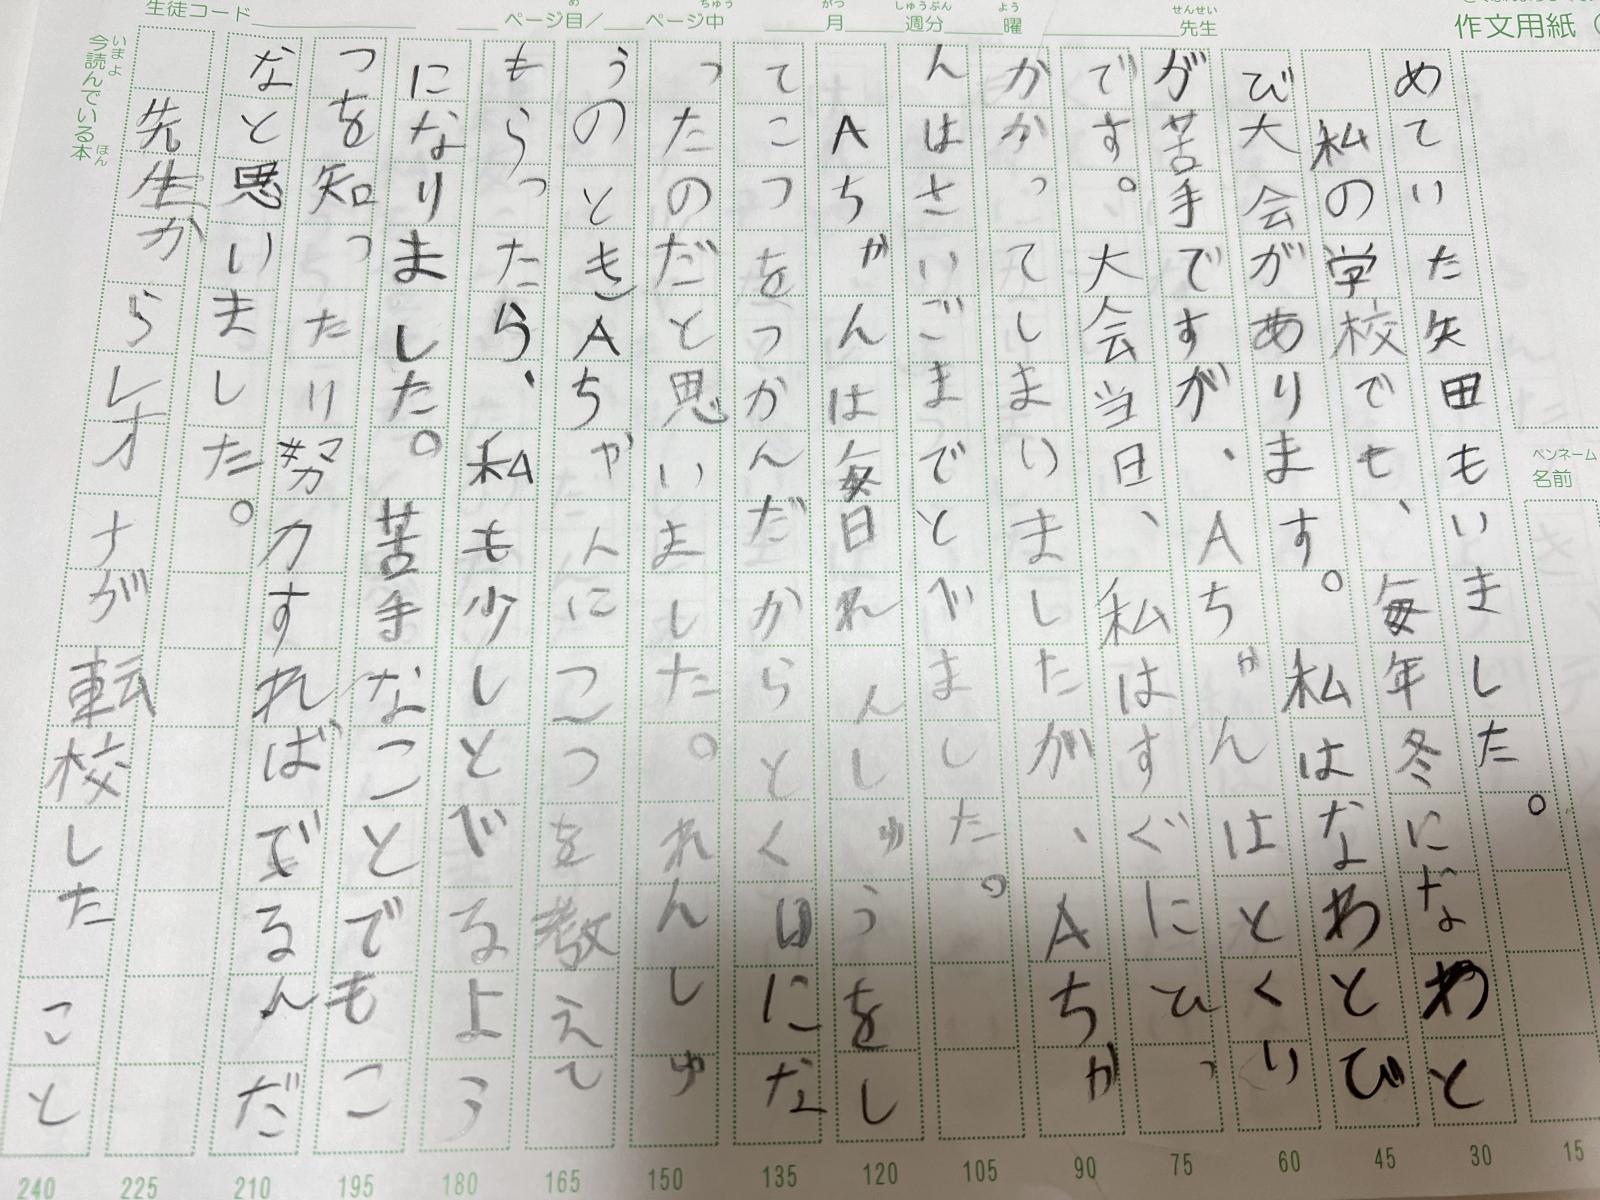 生徒コード
ページ目/ ページ中
め
ちゅう
月 週分 曜
がつ
しゅうぶん
よう
先生
せんせい
作文用紙(
ペンネーム
名前
めていた矢田もいました。
私の学校でも、毎年冬になわと
び大会があります。私はなわとび
が苦手ですが、Aちゃんはとくい
です。大会当日、私はすぐにひっ
かかってしまいましたが、Aちゃ
んはさいごまでとびました。
Aちゃんは毎日れんしゅうをし
てこつをつかんだからとく日にな
ったのだと思いました。れんしゅ
うのときAちゃんにこつを教えて
もらったら、私も少しとびるよう
になりました。苦手なことでもこ
つを知ったり努力すればできるんだ
なと思いました。
先生からレオナが転校したこと
今読んでいる本
いまよ
ほん
15
30
45
60
75
90
105
120
135
150
165
180
195
210
225
240